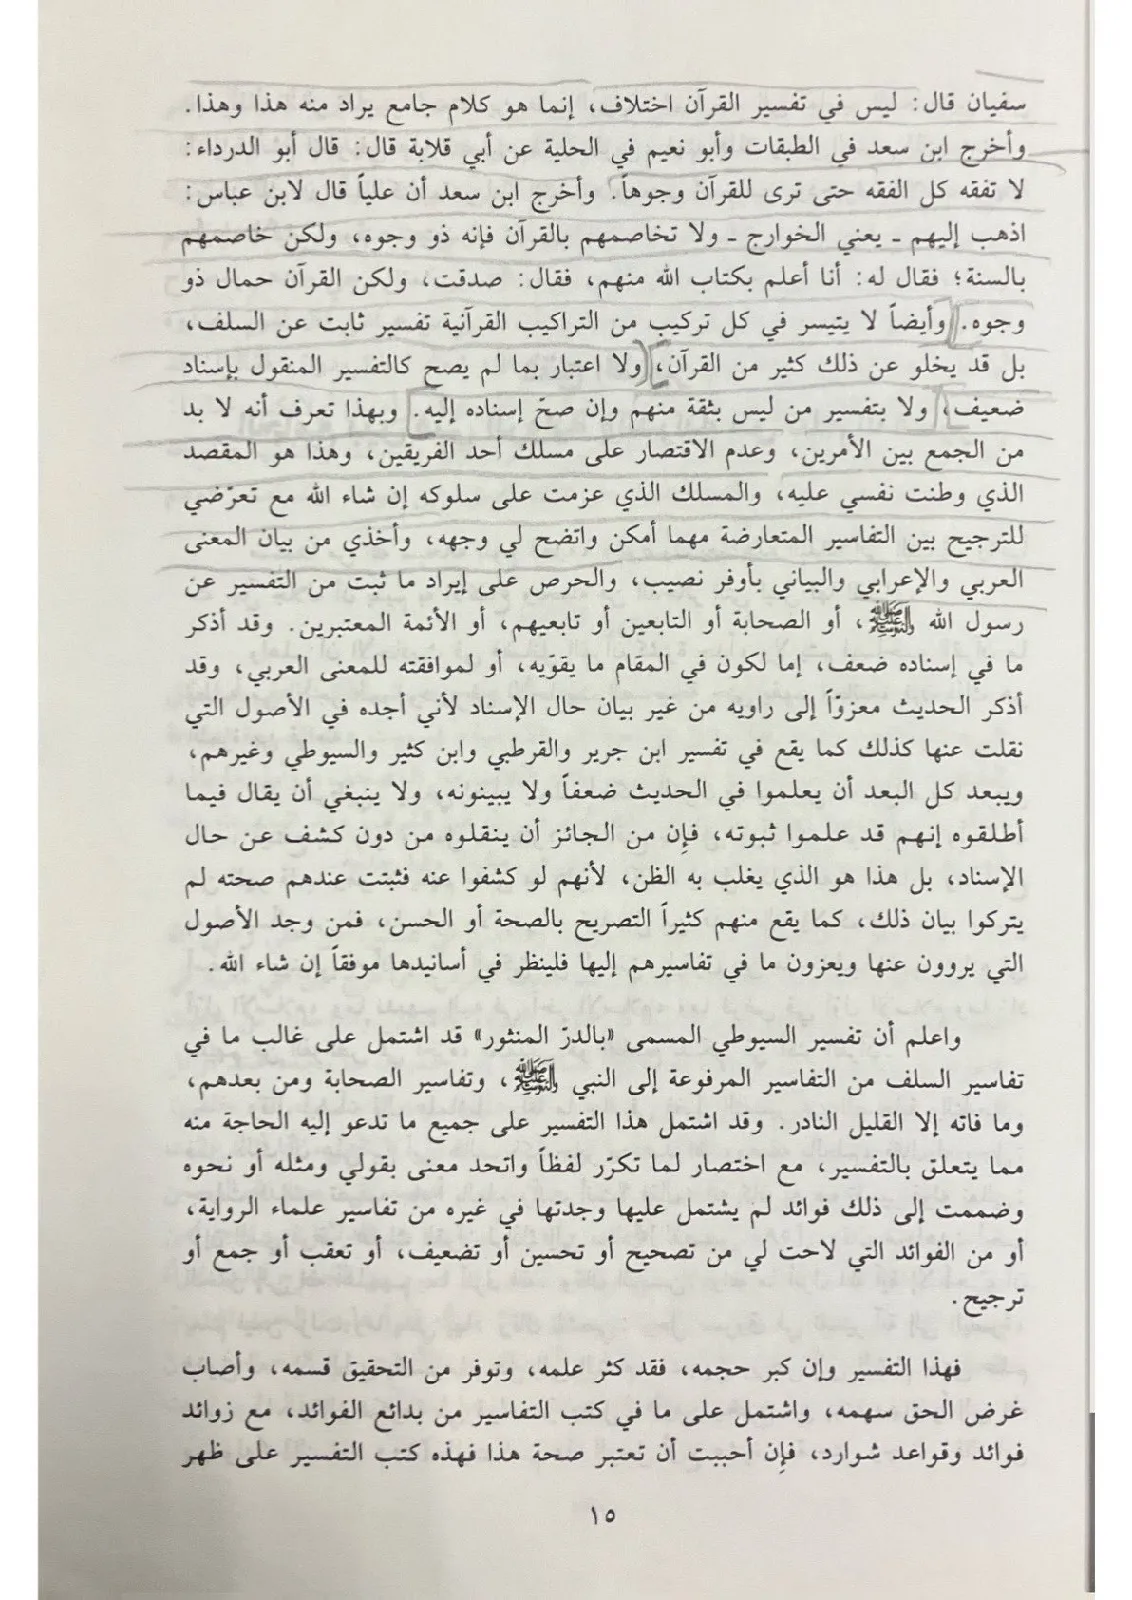 سفيان قال: ليس في تفسير القرآن اختلاف، إنما هو كلام جامع يراد منه هذا وهذا.
وأخرج ابن سعد في الطبقات وأبو نعيم في الحلية عن أبي قلابة قال: قال أبو الدرداء:
لا تفقه كل الفقه حتى ترى للقرآن وجوهاً. وأخرج ابن سعد أن علياً قال لابن عباس:
اذهب إليهم ـ يعني الخوارج ـ ولا تخاصمهم بالقرآن فإنه ذو وجوه، ولكن خاصمهم
بالسنة؛ فقال له: أنا أعلم بكتاب الله منهم، فقال: صدقت، ولكن القرآن حمال ذو
وجوه. وأيضاً لا يتيسر في كل تركيب من التراكيب القرآنية تفسير ثابت عن السلف،
بل قد يخلو عن ذلك كثير من القرآن، ولا اعتبار بما لم يصح كالتفسير المنقول بإسناد
ضعيف، ولا بتفسير من ليس بثقة منهم وإن صحّ إسناده إليه. وبهذا تعرف أنه لا بد
من الجمع بين الأمرين، وعدم الاقتصار على مسلك أحد الفريقين، وهذا هو المقصد
الذي وطنت نفسي عليه، والمسلك الذي عزمت على سلوكه إن شاء الله مع تعرّضي
للترجيح بين التفاسير المتعارضة مهما أمكن واتضح لي وجهه، وأخذي من بيان المعنى
العربي والإعرابي والبياني بأوفر نصيب، والحرص على إيراد ما ثبت من التفسير عن
رسول الله ﷺ، أو الصحابة أو التابعين أو تابعيهم، أو الأئمة المعتبرين. وقد أذكر
ما في إسناده ضعف، إما لكون في المقام ما يقوّيه، أو لموافقته للمعنى العربي، وقد
أذكر الحديث معزوّاً إلى راويه من غير بيان حال الإسناد لأني أجده في الأصول التي
نقلت عنها كذلك كما يقع في تفسير ابن جرير والقرطبي وابن كثير والسيوطي وغيرهم،
ويبعد كل البعد أن يعلموا في الحديث ضعفاً ولا يبينونه، ولا ينبغي أن يقال فيما
أطلقوه إنهم قد علموا ثبوته، فإن من الجائز أن ينقلوه من دون كشف عن حال
الإسناد، بل هذا هو الذي يغلب به الظن، لأنهم لو كشفوا عنه فثبتت عندهم صحته لم
يتركوا بيان ذلك، كما يقع منهم كثيراً التصريح بالصحة أو الحسن، فمن وجد الأصول
التي يروون عنها ويعزون ما في تفاسيرهم إليها فلينظر في أسانيدها موفقاً إن شاء الله.
واعلم أن تفسير السيوطي المسمى «بالدرّ المنثور» قد اشتمل على غالب ما في
تفاسير السلف من التفاسير المرفوعة إلى النبي ﷺ، وتفاسير الصحابة ومن بعدهم،
وما فاته إلا القليل النادر. وقد اشتمل هذا التفسير على جميع ما تدعو إليه الحاجة منه
مما يتعلق بالتفسير، مع اختصار لما تكرّر لفظاً واتحد معنى بقولي ومثله أو نحوه
وضممت إلى ذلك فوائد لم يشتمل عليها وجدتها في غيره من تفاسير علماء الرواية،
أو من الفوائد التي لاحت لي من تصحيح أو تحسين أو تضعيف، أو تعقب أو جمع أو
ترجيح.
فهذا التفسير وإن كبر حجمه، فقد كثر علمه، وتوفر من التحقيق قسمه، وأصاب
غرض الحق سهمه، واشتمل على ما في كتب التفاسير من بدائع الفوائد، مع زوائد
فوائد وقواعد شوارد، فإن أحببت أن تعتبر صحة هذا فهذه كتب التفسير على ظهر
١٥